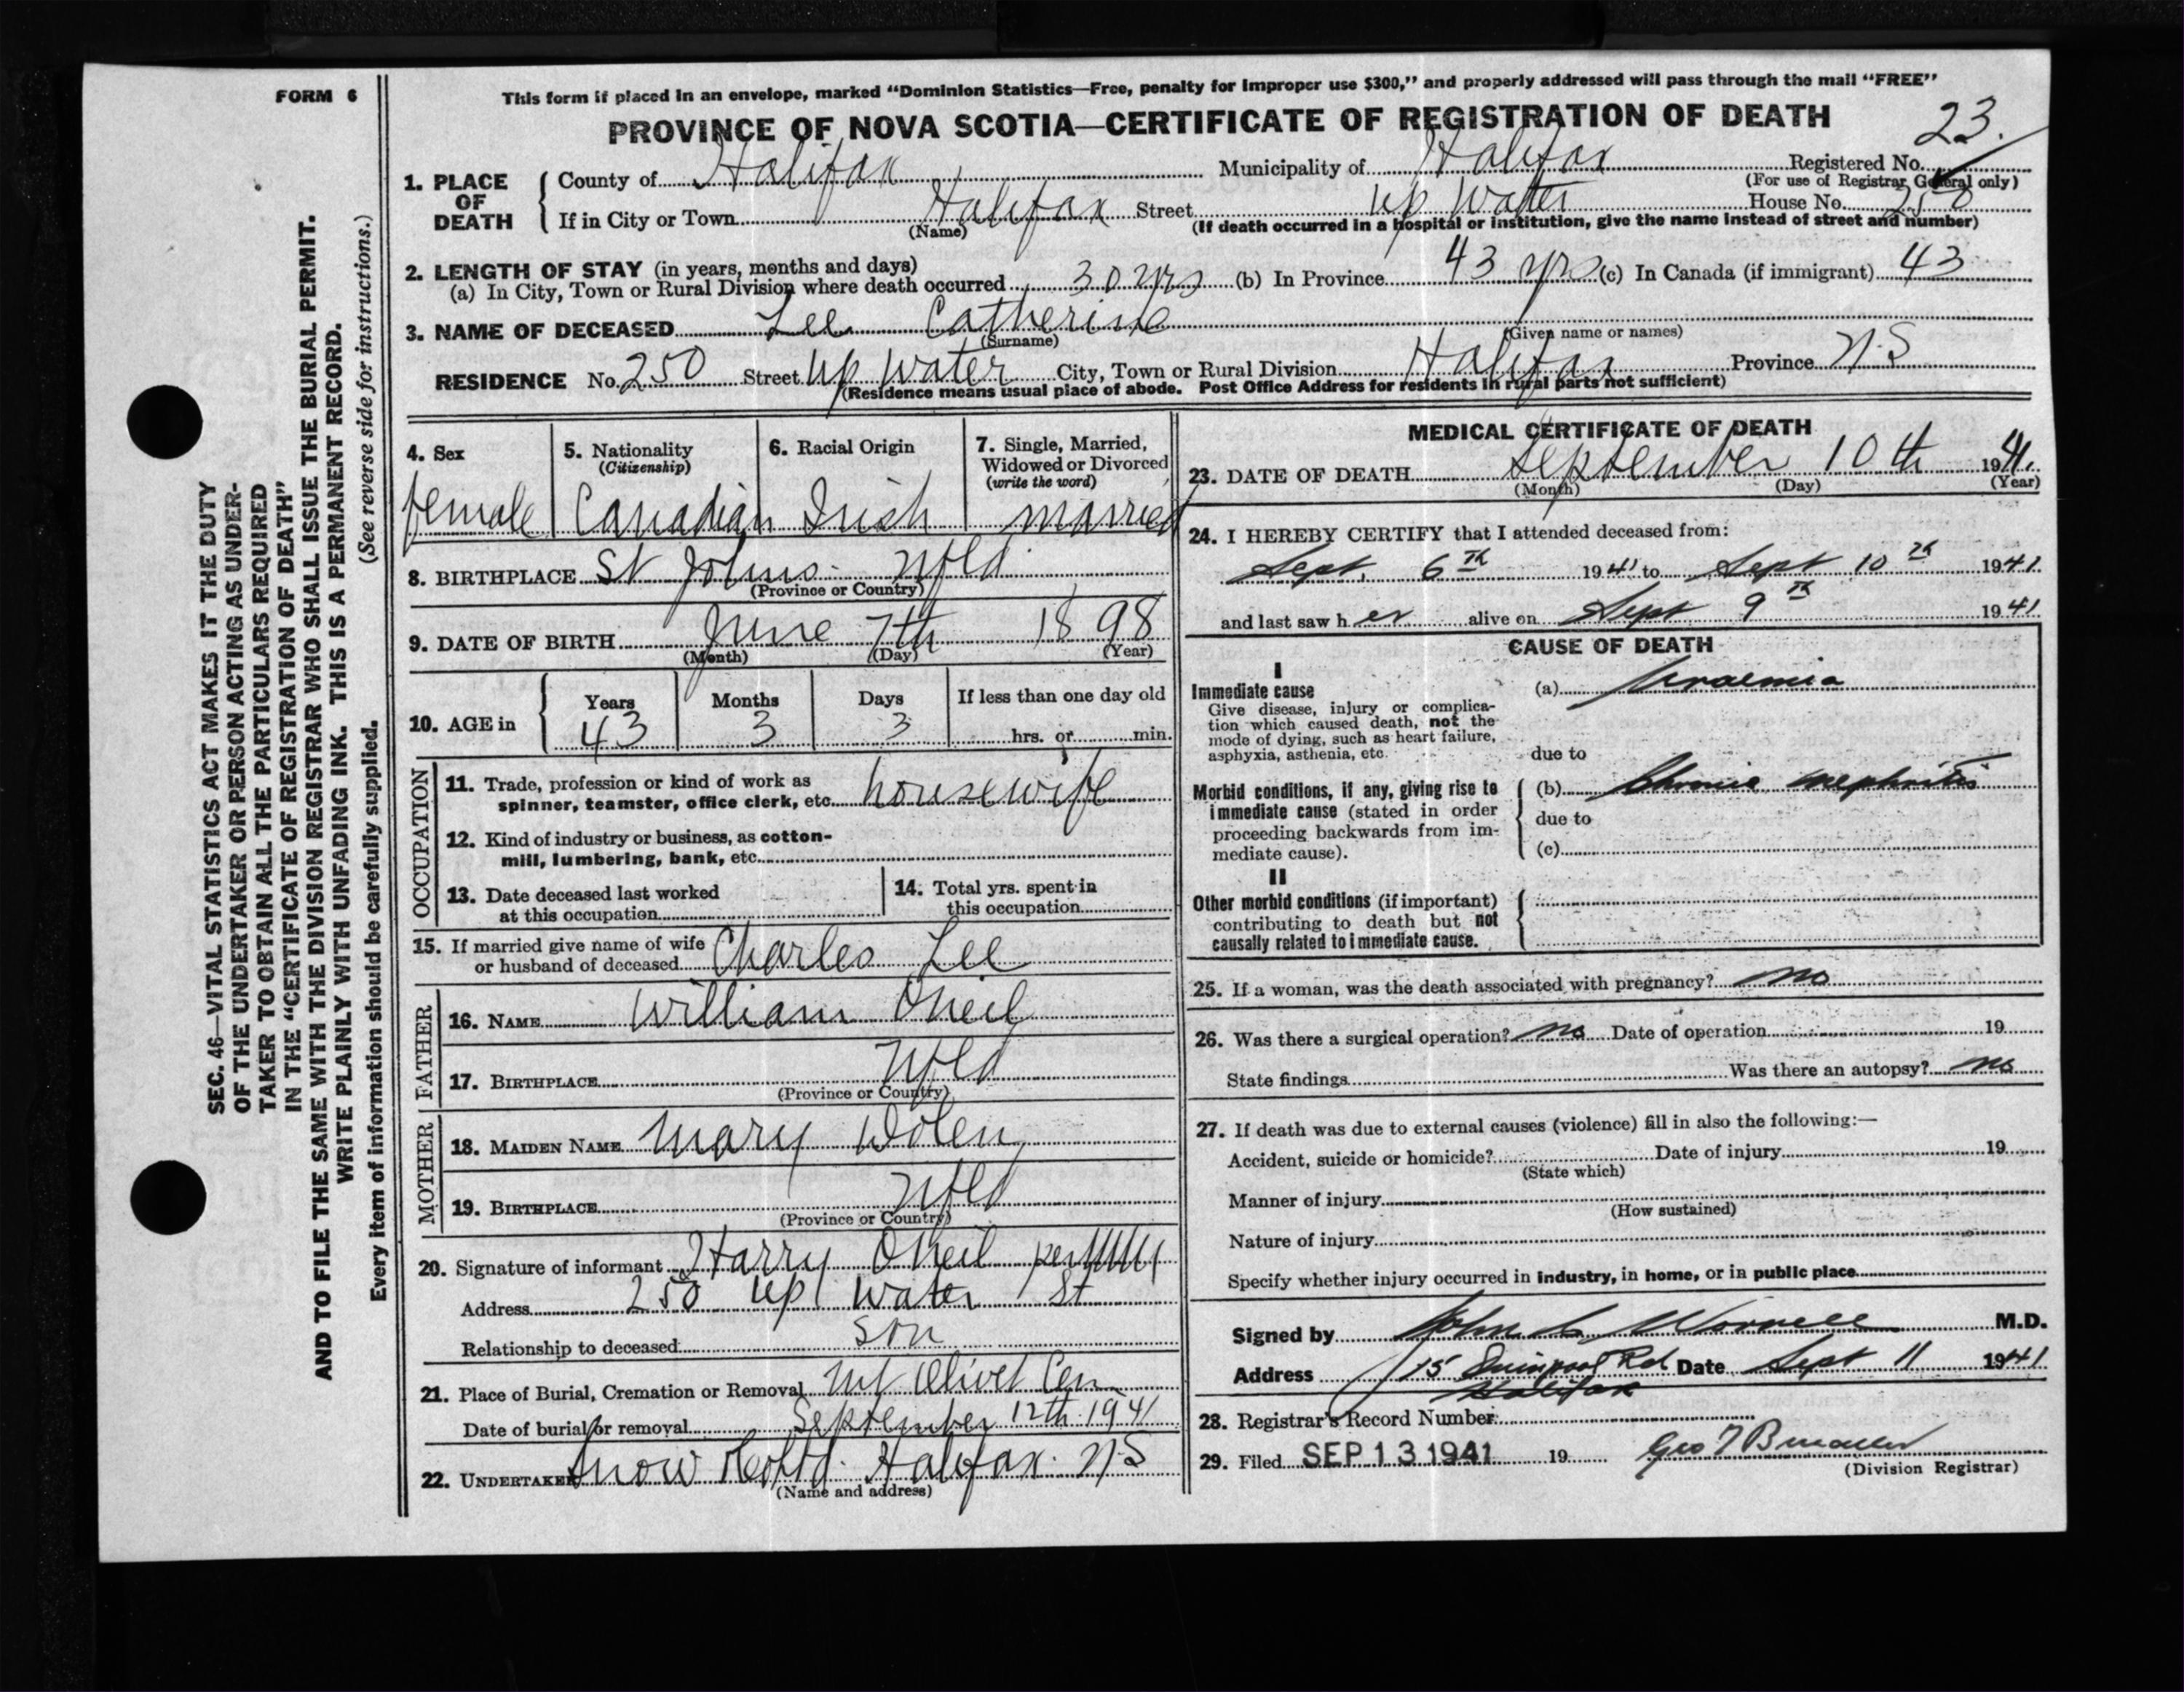 FORM 6
This form if placed in an envelope, marked "Dominion Statistics—Free, penalty for improper use $300," and properly addressed will pass through the mail "FREE"
PROVINCE OF NOVA SCOTIA—CERTIFICATE OF REGISTRATION OF DEATH
23.
1. PLACE OF DEATH
County of Halifax Municipality of Halifax Registered No.
(For use of Registrar General only)
If in City or Town Halifax Street up Water House No. 250
(Name) (If death occurred in a hospital or institution, give the name instead of street and number)
2. LENGTH OF STAY (in years, months and days)
(a) In City, Town or Rural Division where death occurred 30 yrs (b) In Province 43 yrs (c) In Canada (if immigrant) 43
3. NAME OF DECEASED Lee Catherine
(Surname) (Given name or names)
RESIDENCE No. 250 Street up Water City, Town or Rural Division Halifax Province N.S
(Residence means usual place of abode. Post Office Address for residents in rural parts not sufficient)
4. Sex
female
5. Nationality
(Citizenship)
Canadian
6. Racial Origin
Irish
7. Single, Married,
Widowed or Divorced
(write the word)
married
8. BIRTHPLACE St Johns. Nfld
(Province or Country)
9. DATE OF BIRTH June 7th 1898
(Month) (Day) (Year)
10. AGE in
Years Months Days If less than one day old
43 3 3 hrs. or min.
OCCUPATION
11. Trade, profession or kind of work as
spinner, teamster, office clerk, etc. housewife
12. Kind of industry or business, as cotton-
mill, lumbering, bank, etc.
13. Date deceased last worked
at this occupation
14. Total yrs. spent in
this occupation
15. If married give name of wife
or husband of deceased Charles Lee
FATHER
16. NAME William Oneil
17. BIRTHPLACE Nfld
(Province or Country)
MOTHER
18. MAIDEN NAME Mary Dolen
19. BIRTHPLACE Nfld
(Province or Country)
20. Signature of informant Harry Oneil per
Address 250 up Water St
Relationship to deceased son
21. Place of Burial, Cremation or Removal Mt Olivet Cem
Date of burial or removal September 12th 1941
22. UNDERTAKER Snow & Co Ltd. Halifax. N.S
(Name and address)
MEDICAL CERTIFICATE OF DEATH
23. DATE OF DEATH September 10th 1941.
(Month) (Day) (Year)
24. I HEREBY CERTIFY that I attended deceased from:
Sept. 6th 1941 to Sept 10th 1941
and last saw her alive on Sept 9th 1941
CAUSE OF DEATH
I
Immediate cause
Give disease, injury or complica-
tion which caused death, not the
mode of dying, such as heart failure,
asphyxia, asthenia, etc.
(a) Uraemia
due to
Morbid conditions, if any, giving rise to
immediate cause (stated in order
proceeding backwards from im-
mediate cause).
(b) Chronic nephritis
due to
(c)
II
Other morbid conditions (if important)
contributing to death but not
causally related to immediate cause.
25. If a woman, was the death associated with pregnancy? no
26. Was there a surgical operation? no Date of operation 19
State findings Was there an autopsy? no
27. If death was due to external causes (violence) fill in also the following:—
Accident, suicide or homicide? Date of injury 19
(State which)
Manner of injury
(How sustained)
Nature of injury
Specify whether injury occurred in industry, in home, or in public place
Signed by John C Worrell M.D.
Address 75 Quinpool Rd Date Sept 11 1941
Halifax
28. Registrar's Record Number
29. Filed SEP 13 1941 19 Geo
(Division Registrar)
SEC. 46—VITAL STATISTICS ACT MAKES IT THE DUTY
OF THE UNDERTAKER OR PERSON ACTING AS UNDER-
TAKER TO OBTAIN ALL THE PARTICULARS REQUIRED
IN THE "CERTIFICATE OF REGISTRATION OF DEATH"
AND TO FILE THE SAME WITH THE DIVISION REGISTRAR WHO SHALL ISSUE THE BURIAL PERMIT.
WRITE PLAINLY WITH UNFADING INK. THIS IS A PERMANENT RECORD.
Every item of information should be carefully supplied. (See reverse side for instructions.)